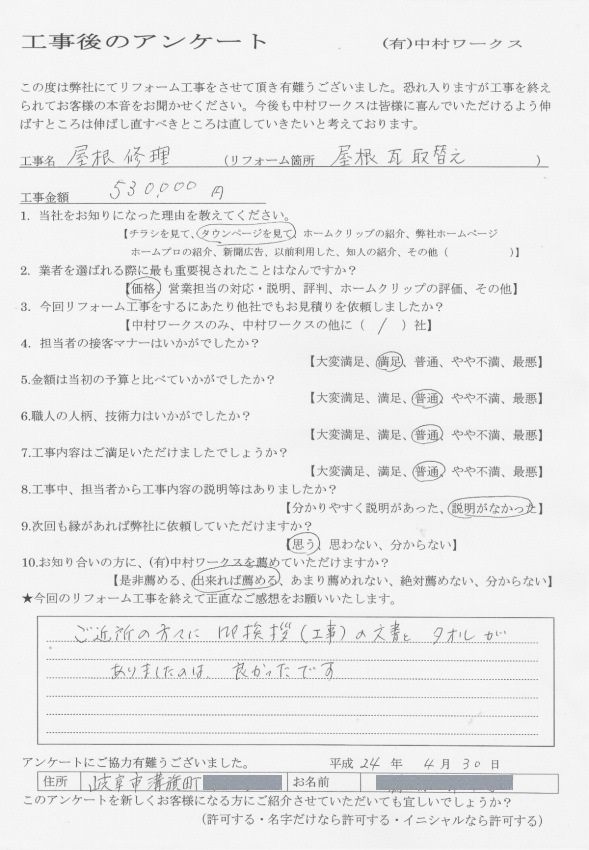 工事後のアンケート (有)中村ワークス
この度は弊社にてリフォーム工事をさせて頂き有難うございました。恐れ入りますが工事を終え
られてお客様の本音をお聞かせください。今後も中村ワークスは皆様に喜んでいただけるよう伸
ばすところは伸ばし直すべきところは直していきたいと考えております。
工事名 屋根修理 (リフォーム箇所 屋根瓦取替え )
工事金額 530,000円
1. 当社をお知りになった理由を教えてください。
【チラシを見て、タウンページを見て、ホームクリップの紹介、弊社ホームページ
ホームプロの紹介、新聞広告、以前利用した、知人の紹介、その他( )】
2. 業者を選ばれる際に最も重要視されたことはなんですか?
【価格、営業担当の対応・説明、評判、ホームクリップの評価、その他】
3. 今回リフォーム工事をするにあたり他社でもお見積りを依頼しましたか?
【中村ワークスのみ、中村ワークスの他に( / )社】
4. 担当者の接客マナーはいかがでしたか?
【大変満足、満足、普通、やや不満、最悪】
5.金額は当初の予算と比べていかがでしたか?
【大変満足、満足、普通、やや不満、最悪】
6.職人の人柄、技術力はいかがでしたか?
【大変満足、満足、普通、やや不満、最悪】
7.工事内容はご満足いただけましたでしょうか?
【大変満足、満足、普通、やや不満、最悪】
8.工事中、担当者から工事内容の説明等はありましたか?
【分かりやすく説明があった、説明がなかった】
9.次回も縁があれば弊社に依頼していただけますか?
【思う、思わない、分からない】
10.お知り合いの方に、(有)中村ワークスを薦めていただけますか?
【是非薦める、出来れば薦める、あまり薦めれない、絶対薦めない、分からない】
★今回のリフォーム工事を終えて正直なご感想をお願いいたします。
ご近所の方々に 挨拶(工事)の文書と タオルが
ありましたのは、良かったです
アンケートにご協力有難うございました。 平成24年 4月30日
住所 岐阜市溝旗町 お名前
このアンケートを新しくお客様になる方にご紹介させていただいても宜しいでしょうか?
(許可する・名字だけなら許可する・イニシャルなら許可する)